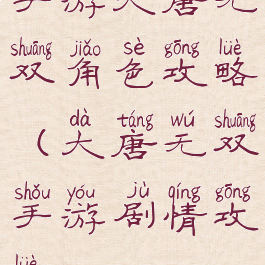 手游大唐无
shuāng jiǎo sè gōng lüè
双角色攻略
dà táng wú shuāng
(大唐无双
shǒu yóu jù qíng gōng
手游剧情攻
lüè